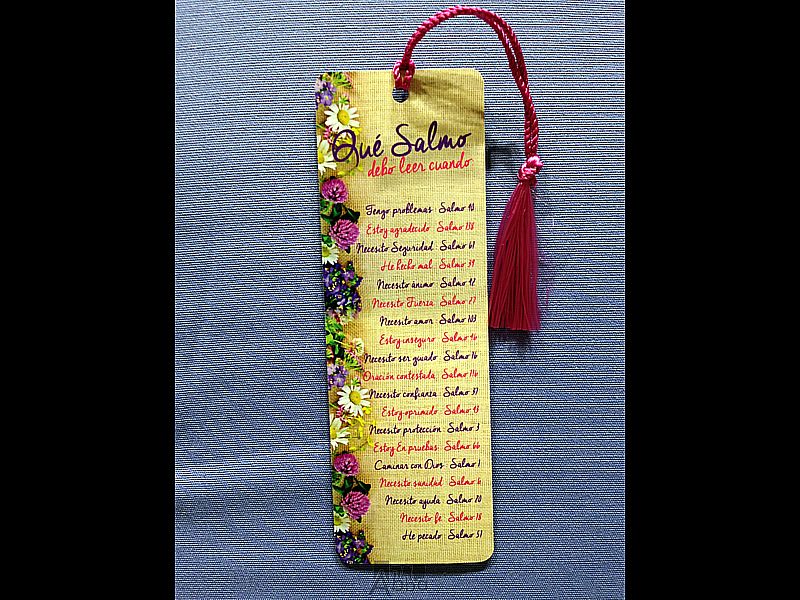 Qué Salmo
debo leer cuando
Tengo problemas Salmo
Estoy agradecido Salmo 138
Necesito Seguridad Salmo 61
He hecho mal Salmo
Necesito ánimo Salmo 42
Necesito Fuerza Salmo 27
Necesito amor Salmo 103
Estoy inseguro Salmo
Necesito ser guiado Salmo 16
Oración contestada Salmo 116
Necesito confianza Salmo 37
Estoy oprimido Salmo 13
Necesito protección Salmo 3
Estoy En pruebas Salmo 66
Caminar con Dios Salmo 1
Necesito sanidad Salmo 6
Necesito ayuda Salmo
Necesito fe Salmo 18
He pecado Salmo 51